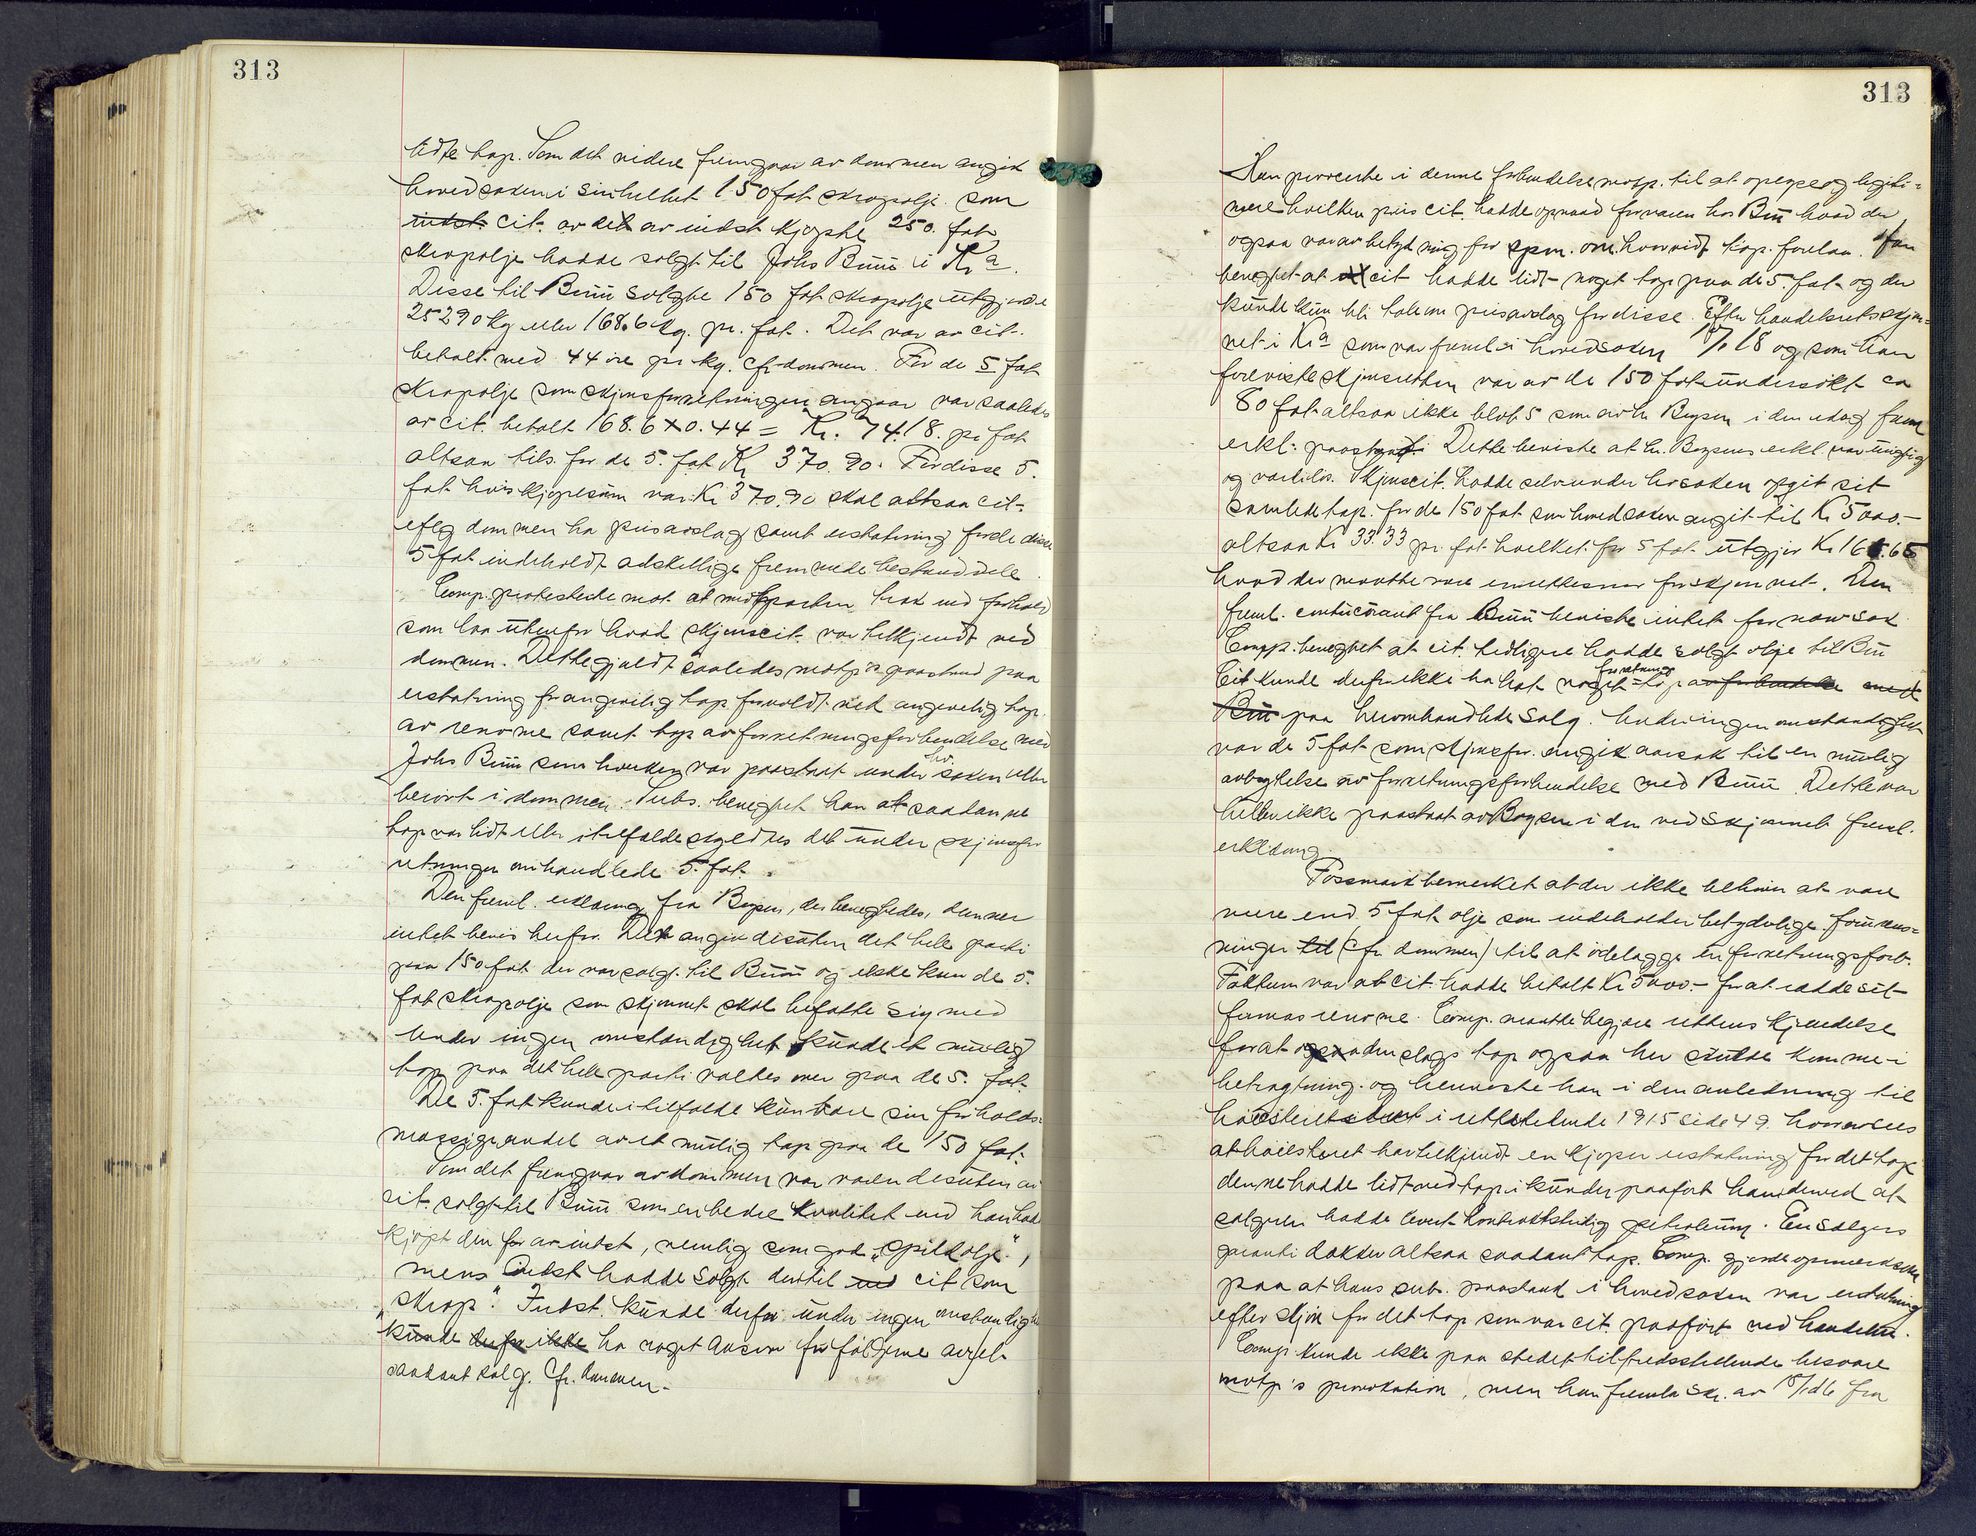 313
lidte tap. Som det videre fremgaar av dommen angik
hovedsaken i sin helhet 150 fat skrapolje som
indst. cit. av det av indst kjøpte 250 fat
skrapolje hadde solgt til Johs Buun i Kr.a.
Disse til Buun solgte 150 fat skrapolje utgjorde
25290 kg eller 168.6 kg. pr. fat. Det var av cit.
betalt med 44 øre pr kg. cfr dommen. For de 5 fat
skrapolje som skjønsforretningen angaar var saaledes
av cit. betalt 168.6 × 0.44 = Kr. 74.18. pr fat
altsaa tils. for de 5. fat Kr 370.90. For disse 5.
fat hvis kjøpesum var Kr 370.90 skal altsaa cit.
iflg dommen ha prisavslag samt erstatning fordi disse
5 fat indeholdt adskillige fremmede bestanddele.
Comp. protesterte mot at motparten trak ind forhold
som laa utenfor hvad skjønscit. var tilkjendt ved
dommen. Dette gjaldt saaledes motp's paastand paa
erstatning for angivelig tap forvoldt ved angivelig tap
av renome samt tap av forretningsforbindelse med
Johs Buun som hverken var paastaat under hr. saken eller
berørt i dommen. Subs. benegtet han at saadanne
tap var lidt eller i tilfælde skyldtes det under skjønsfor
retningen omhandlede 5. fat.
Den freml. erklæring fra Boysen, der benegtedes, danner
intet bevis herfor. Den angik desuten det hele parti
paa 150 fat der var solgt til Buun og ikke kun de 5.
fat skrapolje som skjønnet skal befatte sig med
Under ingen omstændighet kunde et mulig
tap paa det hele parti væltes over paa de 5. fat.
De 5. fat kunde i tilfælde kun bære sin forholds-
mæssige andel av et mulig tap paa de 150 fat.
Som det fremgaar av dommen var varen desuten av
cit. solgt til Buun som en bedre kvalitet end han hadde
kjøpt den for av indst, nemlig som god "spildolje",
mens Indst hadde solgt den til cit som
"skrap". Indst. kunde derfor under ingen omstændighet
kunde derfor ikke ha noget ansvar for følgerne av et
saadant salg. Cfr. dommen.
313
Han provocerte i denne forbindelse motp. til at opgi og legiti-
mere hvilken pris cit. hadde opnaaet for varen hos Buun hvad der
ogsaa var av betydning for spm. om hvorvidt tap forelaa. Han
benegtet at cit hadde lidt noget tap paa de 5. fat og der
kunde kun bli tale om prisavslag for disse. Efter handelsretsskjøn-
net i Kr.a som var freml. i hovedsaken 18 og som han
foreviste skjønsretten var av de 150 fat undersøkt ca
80 fat altsaa ikke blot 5 som av hr. Boysen i den idag freml
erkl. paastaat. Dette beviste at hr. Boysens erkl. var uriktig
og værdiløs. Skjønscit. hadde selv under hr saken opgit sit
samlede tap for de 150 fat som hovedsaken angik til Kr 5000.-
altsaa Kr 33.33 pr. fat hvilket for 5 fat utgjør Kr 166.65
hvad der maatte være en rettesnor for skjønnet. Den
freml. contocorrent fra Buun beviste intet for nærv sak
Comp. benegtet at cit. tidligere hadde solgt olje til Buun
Cit kunde derfor ikke ha hat noget forretnings-tap av forbindelse med
Buun paa heromhandlede salg. Under ingen omstændighet
var de 5 fat som skjønsfor. angik aarsak til en mulig
avbrytelse av forretningsforbindelse med Buun. Dette var
heller ikke paastaat av Boysen i den ved skjønnet freml.
erklæring.
Fossmark bemerket at der ikke behøver at være
mere end 5 fat olje som indeholder betydelige forurens-
ninger til (cfr dommen) til at ødelægge en forretningsforb.
Faktum var at cit. hadde betalt Kr 5000.- for at redde sit
firmas renome. Comp. maatte begjære rettens kjendelse
for at saadan slags tap ogsaa her skulde komme i
betragtning. og henviste han i den anledning til
høiesteretsdom i retstidende 1915 side 49. hvorav sees
at høiesteret har tilkjendt en kjøper erstatning for det tap
denne hadde lidt ved tap i kunder paaført ham derved at
sælgeren hadde levert kontraktstridig petroleum. En sælgers
garanti dækker altsaa saadant tap. Comp. gjorde opmerksom
paa at hans sub. paastand i hovedsaken var erstatning
efter skjøn for det tap som var cit. paaført ved handelen.
Comp. kunde ikke paa stedet tilfredsstillende besvare
motp's provokation, men han fremla skr. av ds. fra